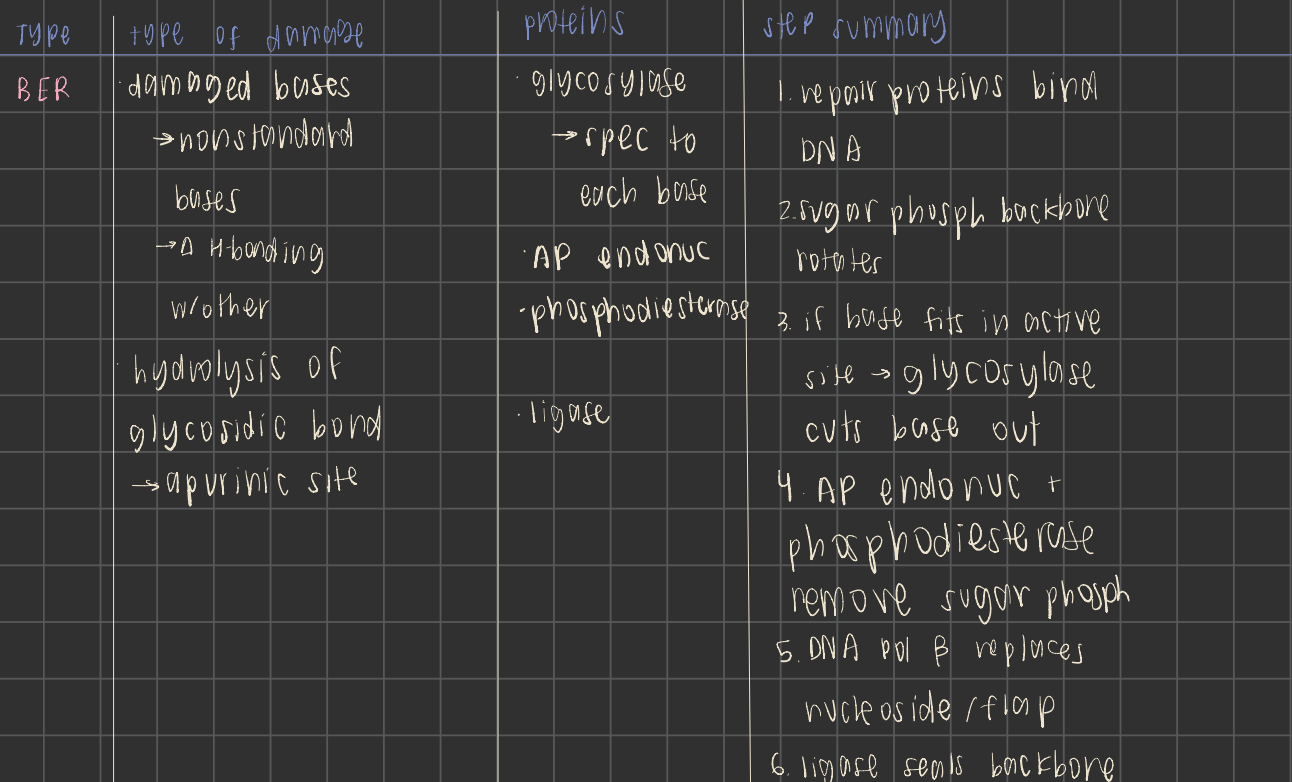 TYPE
type of damage
proteins
step summary
BER
· damaged bases
→ nonstandard
bases
→ Δ H-bonding
w/other
· hydrolysis of
glycosidic bond
→ apurinic site
· glycosylase
→ spec to
each base
· AP endonuc
· phosphodiesterase
· ligase
1. repair proteins bind
DNA
2. sugar phosph backbone
rotates
3. if base fits in active
site → glycosylase
cuts base out
4. AP endonuc +
phosphodiesterase
remove sugar phosph
5. DNA pol β replaces
nucleoside/flap
6. ligase seals backbone